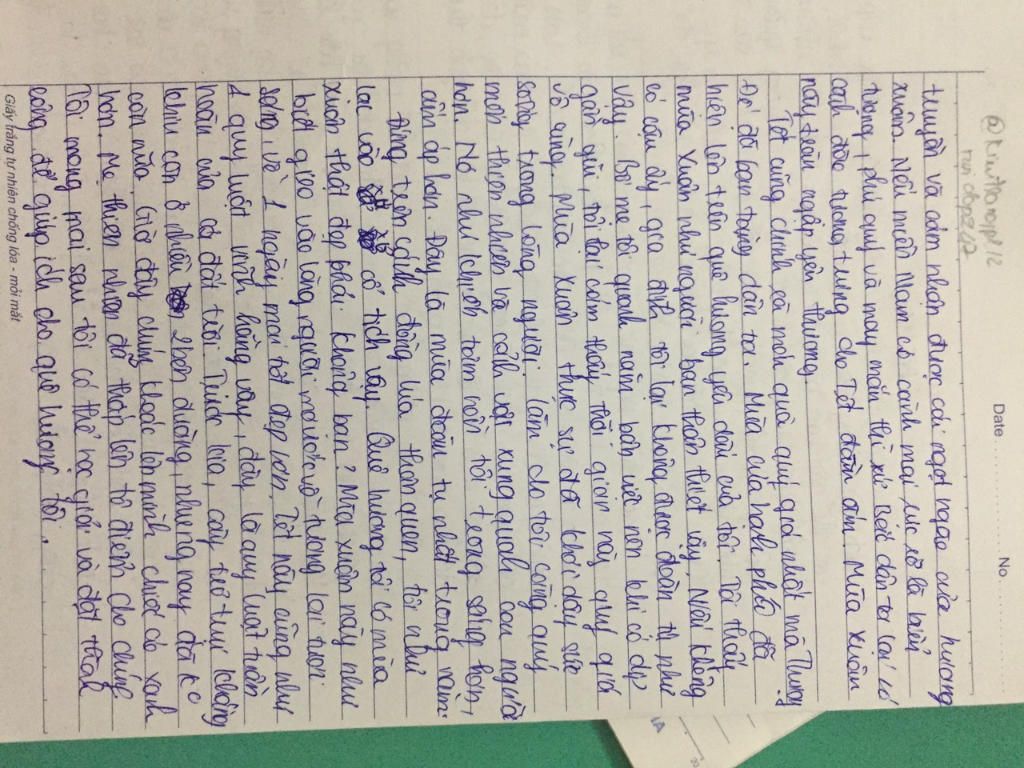 Date: No.
truyền và cảm nhận được cái ngọt ngào của hương
xuân. Nếu miền Nam có cành mai rực rỡ là biểu
tượng, phú quý và may mắn thì xứ Bắc dân ta lại có
cành đào tượng trưng cho Tết đầm ấm. Mùa xuân
này tràn ngập yên thương.
Tết cũng chính là món quà quý giá nhất mà Thượng
Đế đã ban tặng dân ta. Mùa của hạnh phúc đã
hiện lên trên quê hương yêu dấu của tôi. Tôi thấy
mùa xuân như người bạn thân thiết vậy. Nếu không
có cậu ấy, gia đình tôi lại không được đoàn tụ như
vậy. bố mẹ tôi quanh năm bận việc nên khi có dịp
gần gũi, tôi lại cảm thấy thời gian này quý giá
vô cùng. Mùa xuân thực sự đã khơi dậy sức
sống trong lòng người. làm cho tôi càng quý
mến thiên nhiên và cảnh vật xung quanh con người
hơn. Nó như khiến tâm hồn tôi trong sáng hơn,
ấm áp hơn. Đây là mùa đoàn tụ nhất trong năm.
Đứng trên cánh đồng lúa thân quen, tôi như
lại vào cổ tích vậy. Quê hương tôi có mùa
xuân thật đẹp phải không bạn? Mùa xuân này như
biết gieo vào lòng người mơ ước về tương lai tươi
sáng về 1 ngày mai tốt đẹp hơn. Tết này cũng như
1 quy luật vĩnh hằng vậy, đây là quy luật tuần
hoàn của cả đất trời. Trước kia, cây trơ trụi không
còn nữa. Giờ đây chúng khoác lên mình chiếc áo xanh
hơn. Mẹ thiên nhiên đã thắp lên tô điểm cho chúng
Tôi mong mai sau tôi có thể học giỏi và đạt thành
công để giúp ích cho quê hương tôi.
Giấy trắng tự nhiên chống lóa - mỏi mắt